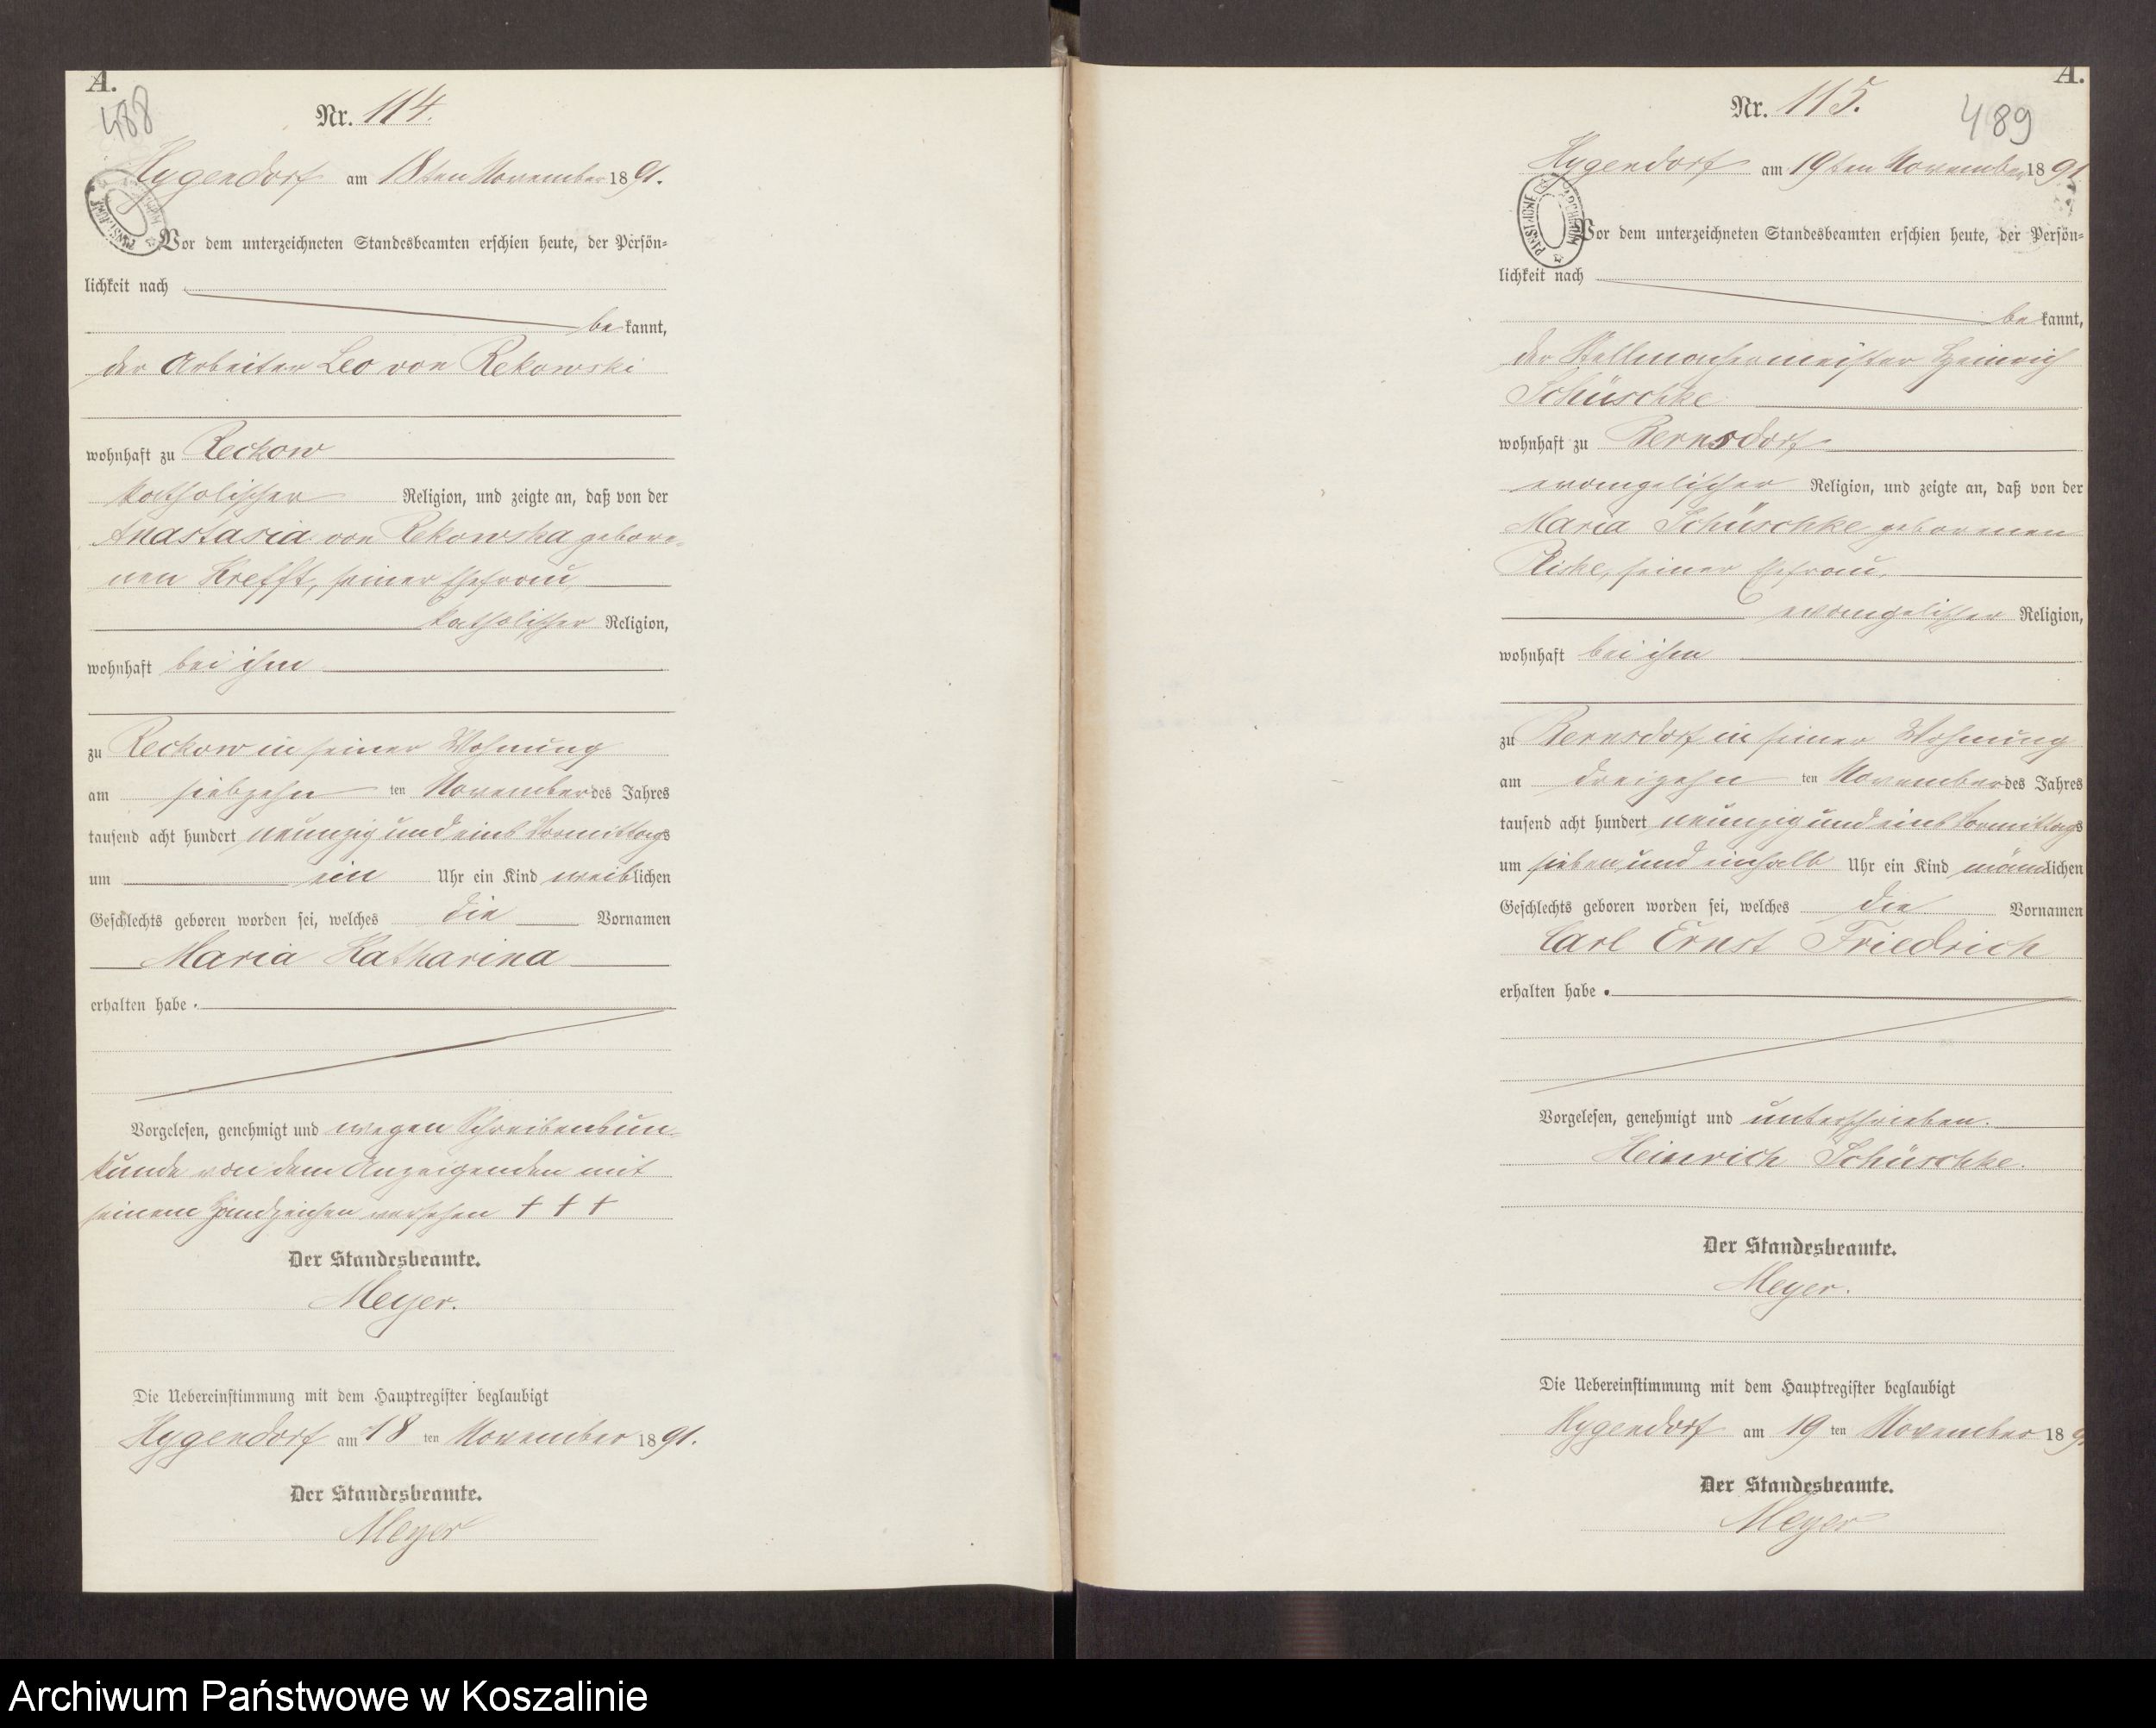 A.
488
Nr. 114.
Hygendorf am 18ten November 1891.
Vor dem unterzeichneten Standesbeamten erschien heute, der Persön=
lichkeit nach
bekannt,
der Arbeiter Leo von Rekowski
wohnhaft zu Reckow
katholischer Religion, und zeigte an, daß von der
Anastasia von Rekowska gebore-
nen Krefft, seiner Ehefrau,
katholischer Religion,
wohnhaft bei ihm
zu Reckow in seiner Wohnung
am siebzehn ten November des Jahres
tausend acht hundert neunzig und eins Vormittags
um ein Uhr ein Kind weiblichen
Geschlechts geboren worden sei, welches die Vornamen
Maria Katharina
erhalten habe.
Vorgelesen, genehmigt und wegen Schreibensun-
kunde von dem Anzeigenden mit
seinem Handzeichen versehen † † †
Der Standesbeamte.
Meyer.
Die Uebereinstimmung mit dem Hauptregister beglaubigt
Hygendorf am 18 ten November 1891.
Der Standesbeamte.
Meyer
A.
489
Nr. 115.
Hygendorf am 19ten November 1891
Vor dem unterzeichneten Standesbeamten erschien heute, der Persön=
lichkeit nach
bekannt,
der Stellmachermeister Heinrich
Schüschke
wohnhaft zu Bernsdorf
evangelischer Religion, und zeigte an, daß von der
Maria Schüschke gebornen
seiner Ehefrau,
evangelischer Religion,
wohnhaft bei ihm
zu Bernsdorf in seiner Wohnung
am dreizehn ten November des Jahres
tausend acht hundert neunzig und eins Vormittags
um sieben und einhalb Uhr ein Kind männlichen
Geschlechts geboren worden sei, welches die Vornamen
Carl Ernst Friedrich
erhalten habe.
Vorgelesen, genehmigt und unterschrieben.
Heinrich Schüschke.
Der Standesbeamte.
Meyer.
Die Uebereinstimmung mit dem Hauptregister beglaubigt
Hygendorf am 19 ten November 189
Der Standesbeamte.
Meyer
Archiwum Państwowe w Koszalinie